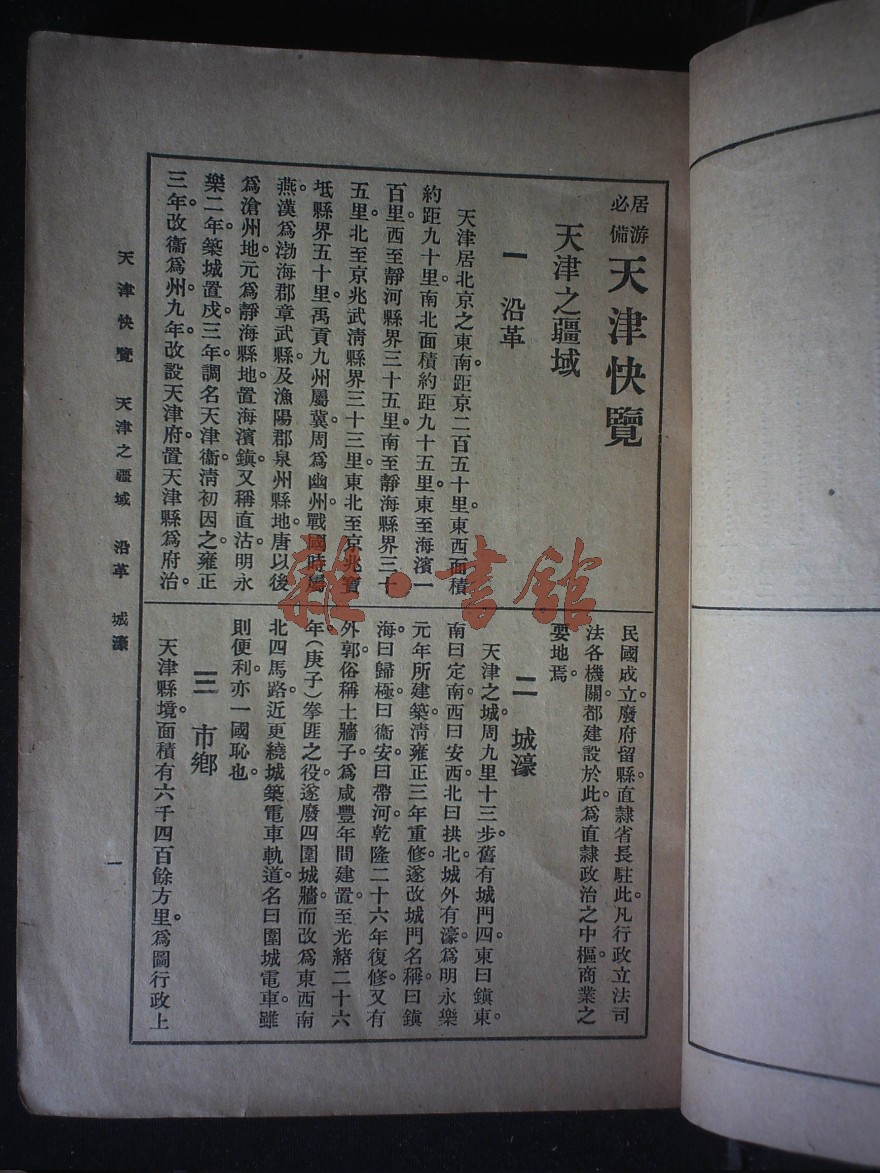 居游必備 天津快覽
天津之疆域
一 沿革
天津居北京之東南。距京二百五十里。東西面積
約距九十里。南北面積約距九十五里。東至海濱一
百里。西至靜河縣界三十五里。南至靜海縣界三十
五里。北至京兆武淸縣界三十三里。東北至京兆寶
坻縣界五十里。禹貢九州屬冀。周爲幽州。戰國時屬
燕。漢爲渤海郡章武縣。及漁陽郡泉州縣地。唐以後
爲滄州地。元爲靜海縣地。置海濱鎭。又稱直沽。明永
樂二年。築城置戍。三年。調名天津衞。淸初因之。雍正
三年。改衞爲州。九年。改設天津府。置天津縣爲府治。
民國成立。廢府留縣。直隸省長駐此。凡行政立法司
法各機關。都建設於此。爲直隸政治之中樞。商業之
要地焉。
二 城濠
天津之城。周九里十三步。舊有城門四。東曰鎭東。
南曰定南。西曰安西。北曰拱北。城外有濠。爲明永樂
元年所建築。淸雍正三年重修。遂改城門名稱。曰鎭
海。曰歸極。曰衞安。曰帶河。乾隆二十六年復修。又有
外郭。俗稱土牆子。爲咸豐年間建置。至光緖二十六
年。（庚子）拳匪之役。遂廢四圍城牆。而改爲東西南
北四馬路。近更繞城築電車軌道。名曰圍城電車。雖
則便利。亦一國恥也。
三 市鄕
天津縣境。面積有六千四百餘方里。爲圖行政上
天津快覽 天津之疆域 沿革 城濠
一
雜·書館